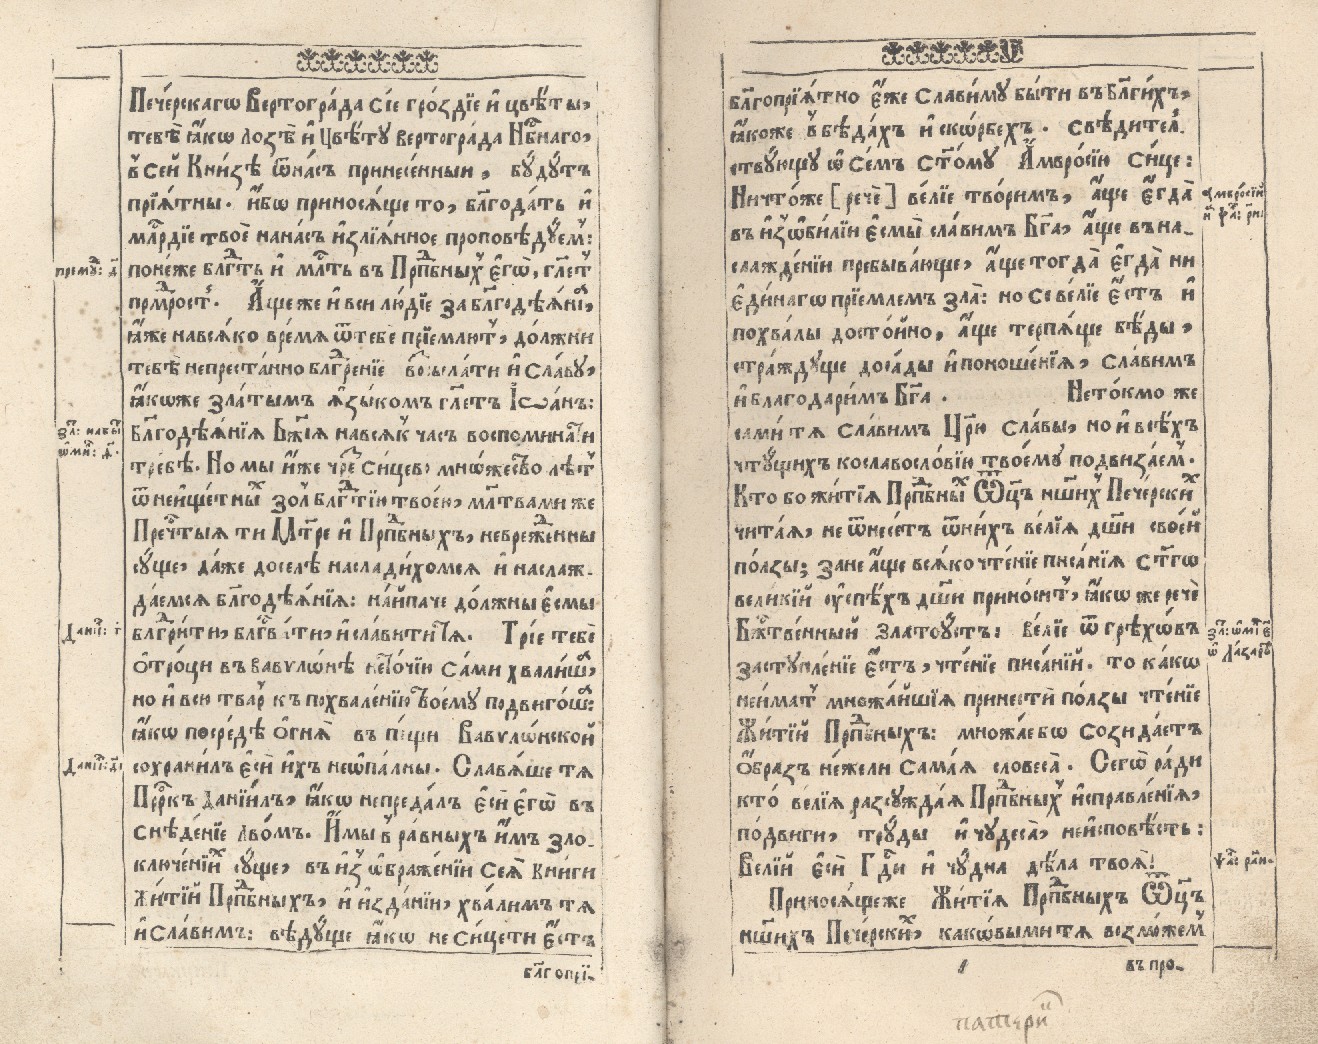 Пече́рскагѡ Вертогра́да сїе гро́здїе и҆ цвѣ́ты,
тебѣ̀ ꙗ҆́кѡ Лозѣ̀ и҆ Цвѣ́ту вертогра́да Нб҃наго,
в̾ сей Кни́зѣ ѿна́съ принесе́нныи, бу́дутъ
прїѧ́тны. и҆́бо приносѧ́ще то, блг҃ода́ть и҆
млⷭ҇рдїе твоѐ нана́съ и҆злїѧ́нное проповѣ́дуем̾:
поне́же блгⷣть и҆ млⷭ҇ть въ Прпⷣбныⷯ є҆гѡ̀, гл҃ет̾
прмⷣрост̾. А҆́ще же и҆ вси лю́дїе за блг҃одѣѧ́нїѧ,
ꙗ҆́же навсѧ́ко вре́мѧ ѿтебе прїе́млют̾, до́лжни
тебѣ̀ непреста́нно блгⷣре́нїе возсыла́ти и҆ сла́ву,
ꙗ҆́кѡже злати́мъ ѧ҆зы́комъ гл҃етъ Іѡа́нъ:
Премⷣ: д҃
блг҃одѣѧ́нїѧ Бж҃їѧ навсѧ́к̾ часъ воспомина́ти
тре́бѣ. Но мы и҆́же чре сицево мно́жество лѣ́т̾
ѿнеищетныⷯ зол̾ блгⷣтїю твое́ю, мл҃твами же
Преч҃тыѧ ти Мт҃ре и҆ Прпⷣбныхъ, невреже́нны
су́ще, да́же доселѣ наслади́хомсѧ и҆ наслаж-
да́емсѧ блг҃одѣѧ́нїѧ: на́ипаче до́лжны є҆смы
Данїи: г҃
блгⷣри́ти, блгⷭ҇ви́ти, и҆ сла́вити тѧ. Трїе тебѐ
ѻ҆́троци въ Вавѵлѡ́нѣ не то́чїю са́ми хвали́ша,
но и҆ всю твар̾ къ похвале́нїю твоему подвиго́ша:
ꙗ҆́кѡ посре́дѣ ѻ҆гнѧ̀ въ пе́щи Вавѵлѡ́нской
сохрани́лъ є҆сѝ и҆́хъ неѡпа́лны. Славѧ́ше тѧ
Прⷪ҇ркъ Данїи́лъ, ꙗ҆́кѡ непреда́лъ є҆сѝ є҆гѡ̀ въ
снѣде́нїе лво́мъ. И҆́мы в̾ ра́вныхъ и҆́мъ зло-
ключе́нїиⷯ су́ще, въ и҆зѡбраже́нїи сеѧ̀ кни́ги
Жи́тїй Прпⷣбныхъ, и҆ и҆зда́нїи, хва́лимъ тѧ
и҆ сла́вимъ: вѣ́дуще ꙗ҆́кѡ не си́це ти є҆́сть
блг҃опрї-
блг҃опрїѧ́тно є҆́же сла́виму бы́ти въ Блг҃и́хъ,
ꙗ҆́коже в̾ бѣда́хъ и҆ ско́рбехъ. Свѣди́тел̾-
ству́ющу ѡ҆ се́мъ ст҃о́му А҆мвро́сїю си́це:
Ничто́же [речѐ] ве́лїе тво́римъ, а҆́ще є҆гда̀
въ и҆зѡби́лїи є҆смы̀ сла́вимъ Бг҃а, а҆́ще въ на-
слажде́нїи пребыва́юще, а҆́ще тогда̀ є҆гда̀ ни
є҆ди́нагѡ прїе́млемъ зла̀: но се ве́лїе є҆́сть и҆
похвалы̀ досто́йно, а҆́ще терпѧ́ще бѣ́ды,
стра́ждуще доса́ды и҆ поноше́нїѧ, сла́вимъ
и҆ благодари́мъ Бг҃а. Нето́кмо же
сами тѧ сла́вимъ Цр҃ю сла́вы, но и҆ всѣ́хъ
чту́щихъ ко славосло́вїю твоему́ подвиза́ем̾.
Кто бо жи́тїѧ Прпⷣбныⷯ Ѿц҃ъ нш҃иⷯ Пече́рскиⷯ
чита́ѧ, не ѿнесе́тъ ѿни́хъ ве́лїѧ дш҃и своей
по́лзы; зане а҆́ще всѧ́ко чте́нїе писа́нїѧ ст҃гѡ
вели́кїй ѹ҆спѣ́хъ дш҃и прино́сит̾, ꙗ҆́кѡ же речѐ
Бжⷭ҇твенный Златоу́стъ: ве́лїе ѿ грѣхѡ́въ
заступле́нїе є҆́сть, чте́нїе писа́нїй. то ка́кѡ
неи́мат̾ множа́йшїѧ принестѝ по́лзы чте́нїе
Жи́тїй Прпⷣбныхъ: множа́е бо созида́етъ
ѻ҆́бразъ не́жели сама́ѧ словеса̀. Сегѡ̀ ра́ди
кто̀ ве́лїѧ разсужда́ѧ Прпⷣбныⷯ и҆справле́нїѧ,
по́двиги, труды̀ и҆ чудеса̀, неисповѣ́сть:
Ве́лїй є҆сѝ Гдⷭ҇и и҆ чу́дна дѣ́ла твоѧ̀!
Приносѧ́щеже Жи́тїѧ Прпⷣбныхъ Ѿц҃ъ
нш҃ихъ Пече́рскиⷯ, какѡ́выми тѧ возло́жем̾
въ про-